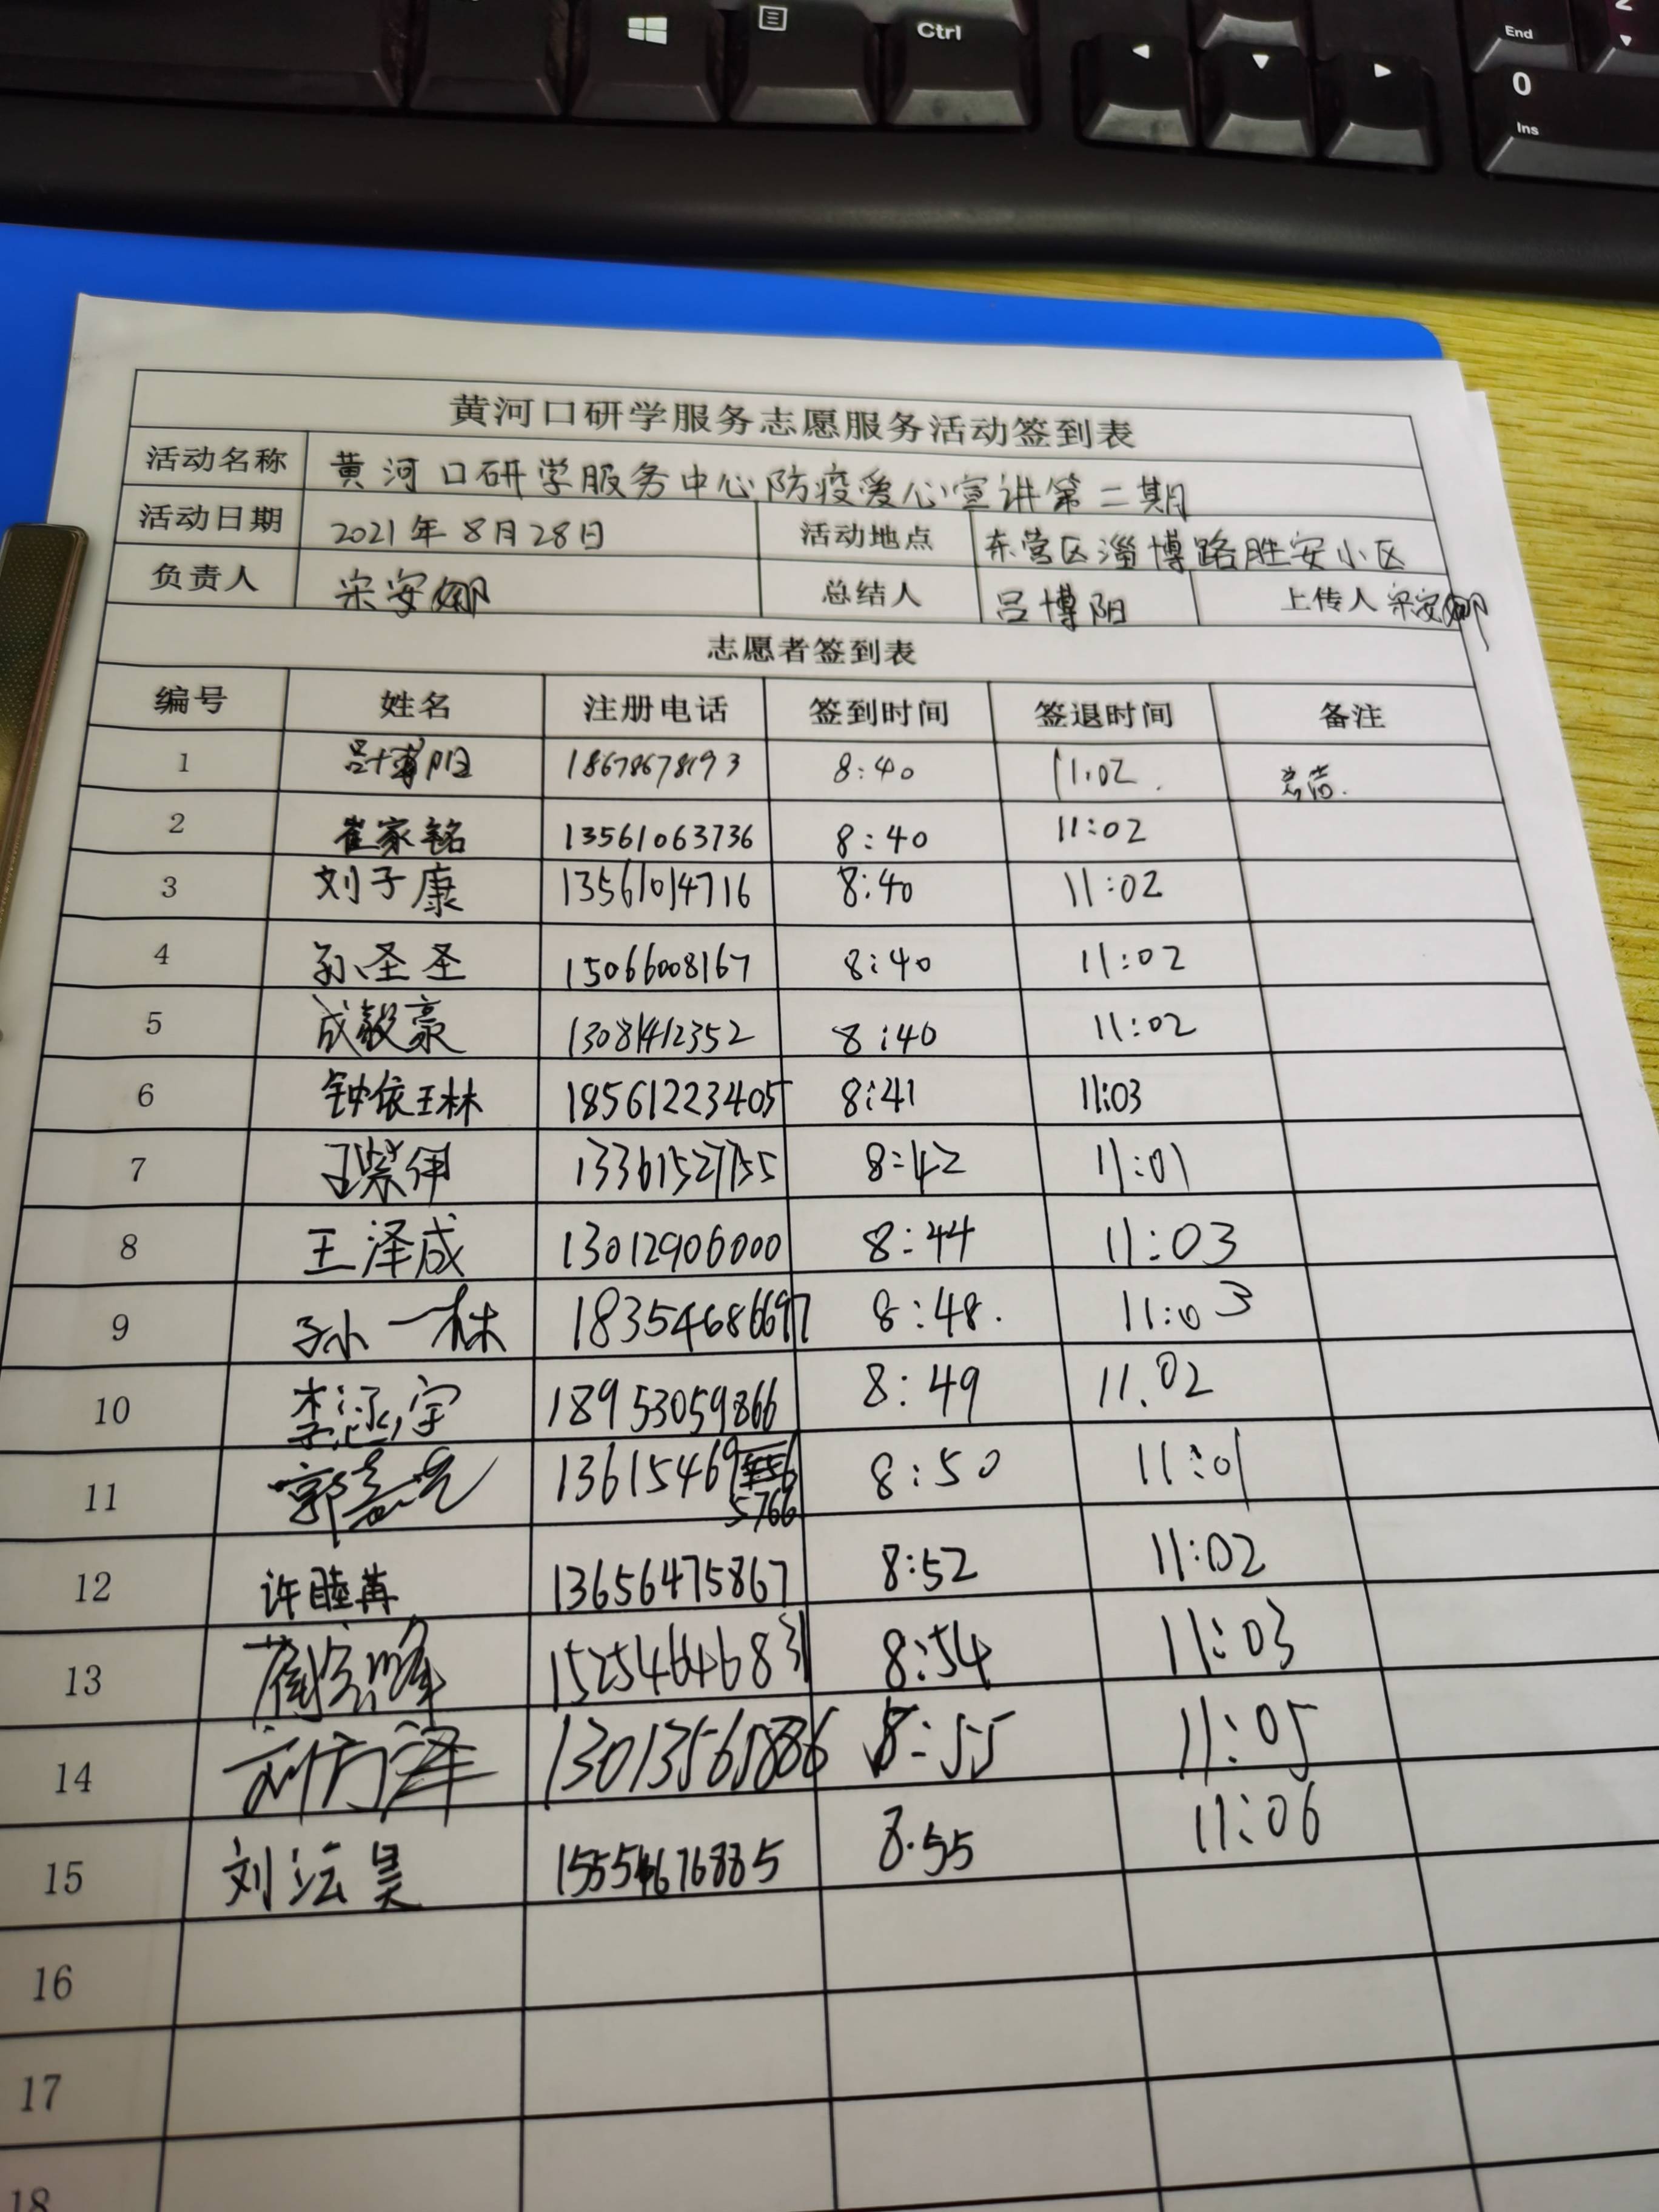 Ctrl
End
0
Ins
2
黄河口研学服务志愿服务活动签到表
活动名称 黄河口研学服务中心防疫爱心宣讲第二期
活动日期 2021年8月28日 活动地点 东营区淄博路胜安小区
负责人 宋安娜 总结人 吕博阳 上传人 宋安娜
志愿者签到表
编号 姓名 注册电话 签到时间 签退时间 备注
1 吕博阳 18678678193 8:40 11:02 总结.
2 崔家铭 13561063736 8:40 11:02
3 刘子康 13561014716 8:40 11:02
4 孙圣圣 15066008167 8:40 11:02
5 成毅豪 13081412352 8:40 11:02
6 钟依琳 18561223405 8:41 11:03
7 王紫伊 13361527155 8:42 11:01
8 王泽成 13012906000 8:44 11:03
9 孙一林 18354686697 8:48. 11:03
10 李涵宇 18953059866 8:49 11.02
11 13615469 5766 8:50 11:01
12 许睦苒 13656475867 8:52 11:02
13 15254646831 8:54 11:03
14 8:55 11:05
15 刘沄昊 15554676885 8.55 11:06
16
17
18